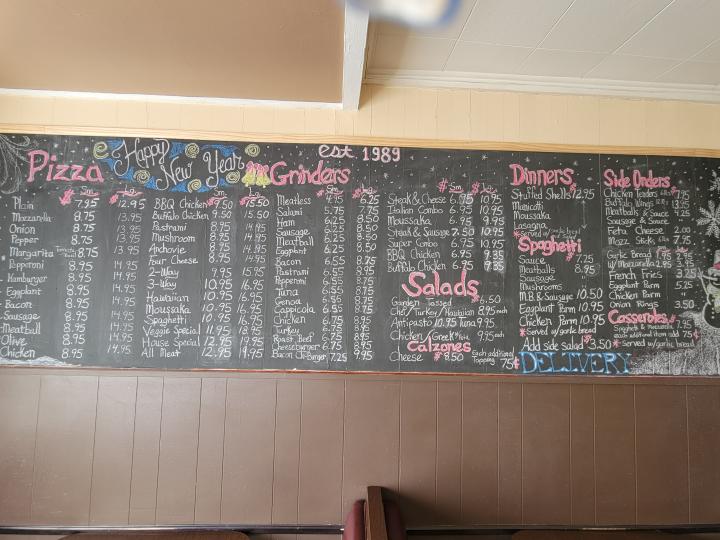 Happy New Year
est 1989
Pizza
Sm Lg
Plain 7.95 12.95
Mozzarella 8.75 13.95
Onion 8.75 13.95
Pepper 8.75 13.95
Margarita 8.75 13.95
Pepperoni 8.95 14.95
Hamburger 8.95 14.95
Eggplant 8.95 14.95
Bacon 8.95 14.95
Sausage 8.95 14.95
Meatball 8.95 14.95
Olive 8.95 14.95
Chicken 8.95 14.95
BBQ Chicken 9.50 15.50
Buffalo Chicken 9.50 15.50
Pastrami 8.95 14.95
Mushroom 8.95 14.95
Anchovie 8.95 14.95
Four Cheese 8.95 14.95
2-Way 9.95 15.95
3-Way 10.95 16.95
Hawaiian 10.95 16.95
Moussaka 10.95 16.95
Spaghetti 10.95 16.95
Veggie Special 11.95 18.95
House Special 12.95 19.95
All Meat 12.95 19.95
Grinders
Sm Lg
Meatless 4.95 6.25
Salami 5.75 7.75
Ham 6.25 8.50
Sausage 6.25 8.50
Meatball 6.25 8.50
Eggplant 6.25 8.50
Bacon 6.55 8.95
Pastrami 6.55 8.95
Pepperoni 6.55 8.95
Tuna 6.55 8.95
Genoa 6.55 8.95
Cappicola 6.55 8.95
Chicken 6.75 8.95
Turkey 6.75 8.95
Roast Beef 6.75 8.95
Cheeseburger 6.75 8.95
Bacon ChBurger 7.25 9.95
Sm Lg
Steak & Cheese 6.75 10.95
Italian Combo 6.95 10.95
Moussaka 6.95 9.95
Steak & Sausage 7.50 10.95
Super Combo 6.75 10.95
BBQ Chicken 6.95 9.35
Buffalo Chicken 6.95 9.35
Salads
Garden Tossed 6.50
Chef/Turkey/Hawaiian 8.95
Antipasto 10.95 Tuna 9.95
Chicken/Greek 9.95
Calzones
Cheese 8.50 Each additional topping .75¢
Dinners
Stuffed Shells 12.95
Manicotti
Moussaka
Lasagna
Spaghetti
Sauce 7.25
Meatballs 8.95
Sausage
Mushrooms
M.B & Sausage 10.50
Eggplant Parm 10.95
Chicken Parm 10.95
served w/ garlic bread
Add side salad 3.50
DELIVERY
Side Orders
Chicken Tenders
Buffalo Wings
Meatballs & Sauce 4.25
Sausage & Sauce
Feta Cheese 2.00
Mozz Sticks
Garlic Bread
w/ Mozzarella 2.95
French Fries 3.25
Eggplant Parm 5.25
Chicken Parm
Onion Rings 3.50
Casseroles
Spaghetti & Mozzarella
each additional item add .75
served w/ garlic bread